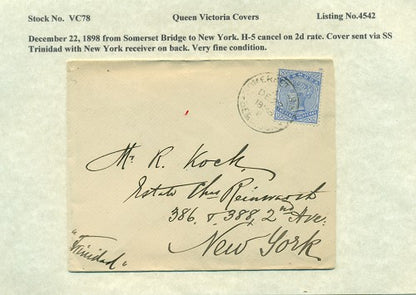 Stock No. VC78 Queen Victoria Covers Listing No.4542
December 22, 1898 from Somerset Bridge to New York. H-5 cancel on 2d rate. Cover sent via SS
Trinidad with New York receiver on back. Very fine condition.
Mr. R. Kock.
Estate Chas Reinwarth
386. & 388, 2nd Ave.
New York
"Trinidad"